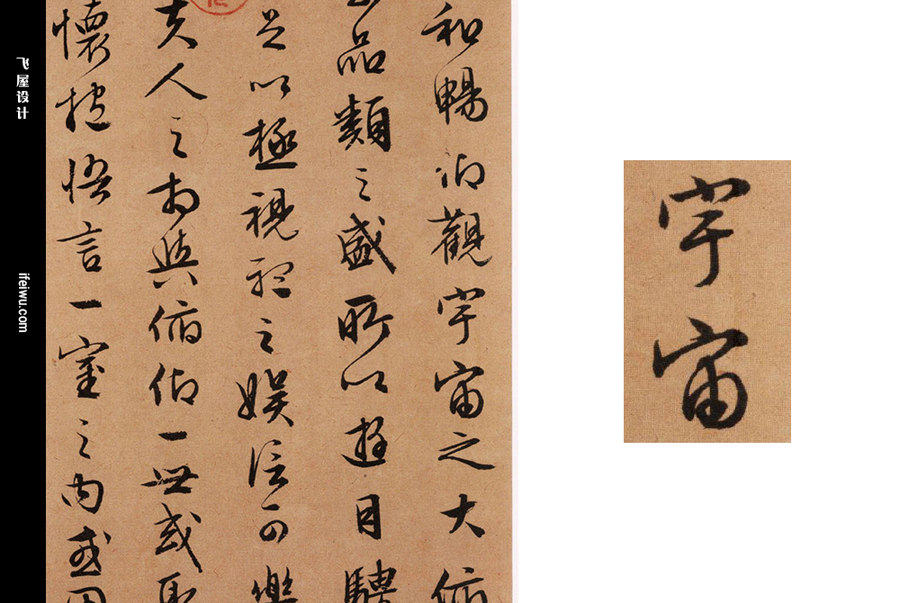 飞屋设计
ifeiwu.com
和暢仰觀宇宙之大俯
品類之盛所以遊目騁
足以極視聽之娛信可樂
夫人之相與俯仰一世或取
懷抱悟言一室之內或因
宇宙